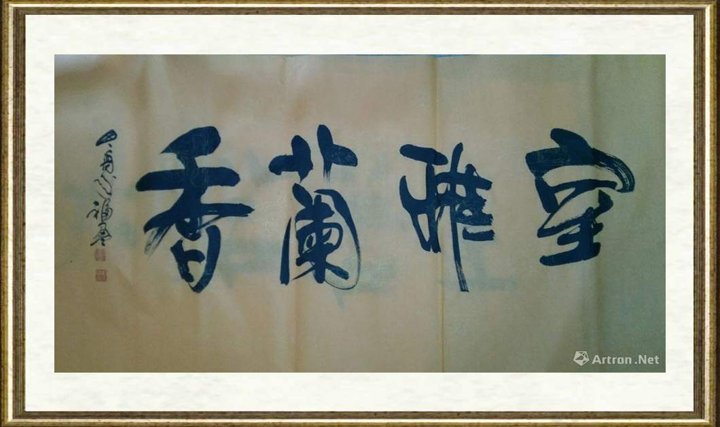 室雅蘭香
Artron.Net